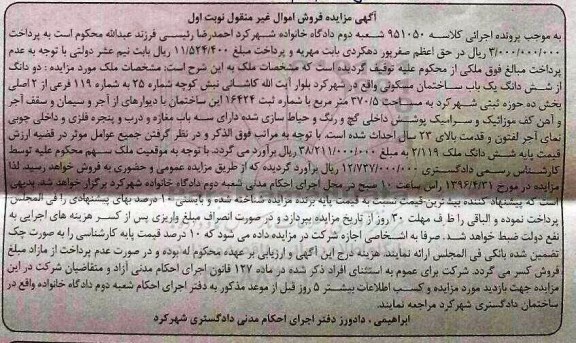 آگهی مزایده فروش اموال غیر منقول نوبت اول
به موجب پرونده اجرائی کلاسه ۹۵۱۰۵۰ شعبه دوم دادگاه خانواده شهرکرد احمدرضا رئیسی فرزند عبدالله محکوم است به پرداخت
۳/۰۰۰/۰۰۰/۰۰۰ ریال در حق اعظم صفرپور دهکردی بابت مهریه و پرداخت مبلغ ۱۱/۵۲۴/۴۰۰ ریال بابت نیم عشر دولتی با توجه به عدم
پرداخت مبالغ فوق ملکی از محکوم علیه توقیف گردیده است که مشخصات ملک به این شرح است: مشخصات ملک مورد مزایده : دو دانگ
از شش دانگ یک باب ساختمان مسکونی واقع در شهرکرد بلوار آیت الله کاشانی نبش کوچه شماره ۲۵ به شماره ۱۱۹ فرعی از ۲ اصلی
بخش ده حوزه ثبتی شهرکرد به مساحت ۳۷۰/۵ متر مربع با شماره ثبت ۱۶۴۲۴ این ساختمان با دیوارهای از آجر و سیمان و سقف آجر
و آهن کف موزائیک و سرامیک پوشش داخلی گچ و رنگ و حیاط سازی شده دارای سه باب مغازه و درب و پنجره فلزی و داخلی چوبی
نمای آجر لفتون و قدمت بالای ۲۳ سال احداث شده است. با توجه به مراتب فوق الذکر و در نظر گرفتن جمیع عوامل موثر در قضیه ارزش
قیمت پایه شش دانگ ملک ۲/۱۱۹ به مبلغ ۳۸/۲۱۱/۰۰۰/۰۰۰ ریال برآورد می گردد. با توجه به موقعیت ملک سهم محکوم علیه توسط
کارشناس رسمی دادگستری ۱۲/۷۳۷/۰۰۰/۰۰۰ ریال برآورد گردیده که از طریق مزایده عمومی و حضوری به فروش خواهد رسید. لذا
مزایده در مورخ ۱۳۹۶/۴/۳۱ راس ساعت ۱۰ صبح در محل اجرای احکام مدنی شعبه دوم دادگاه خانواده شهرکرد برگزار خواهد شد. بدیهی
است که پیشنهاد کننده بیشترین قیمت نسبت به قیمت پایه برنده مزایده شناخته شده و بایستی ۱۰ درصد بهای پیشنهادی را فی المجلس
پرداخت نموده و الباقی را ظرف مهلت ۳۰ روز از تاریخ مزایده بپردازد و در صورت انصراف مبلغ واریزی پس از کسر هزینه های اجرایی به
نفع دولت ضبط خواهد شد. صرفا به اشخاصی اجازه شرکت در مزایده داده می شود که ۱۰ درصد قیمت پایه کارشناسی را به صورت چک
تضمین شده بانکی فی المجلس ارائه نمایند. هزینه درج این آگهی و ارزیابی بر عهده محکوم له بوده و در صورت عدم پرداخت از مازاد مبلغ
فروش کسر می گردد. شرکت برای عموم به استثنای افراد ذکر شده در ماده ۱۲۷ قانون اجرای احکام مدنی آزاد و متقاضیان شرکت در این
مزایده جهت بازدید مورد مزایده و کسب اطلاعات بیشتر ۵ روز قبل از موعد مذکور به دفتر اجرای احکام شعبه دوم دادگاه خانواده واقع در
ساختمان دادگستری شهرکرد مراجعه نمایند.
ابراهیمی ، دادورز دفتر اجرای احکام مدنی دادگستری شهرکرد